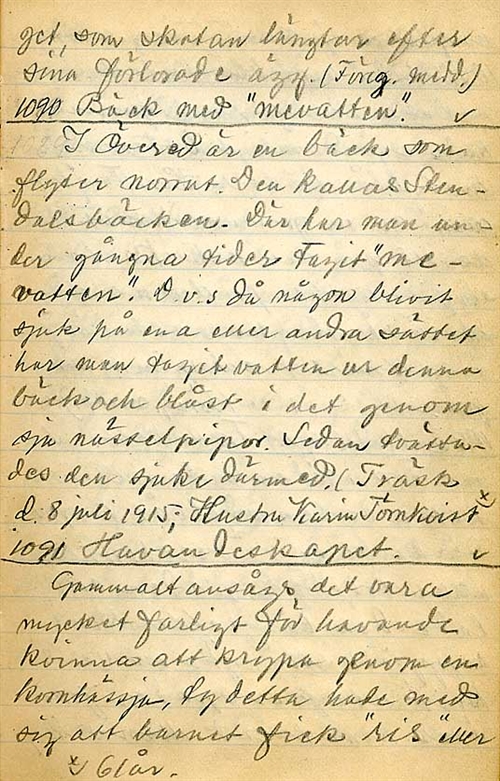 get, som skatan längtar efter
sina förlorade ägg. (Förg. medd.)
1090 Bäck med "mevatten". v
I Övered är en bäck som
flyter norrut. Den kallas Sten-
dalsbäcken. Där har man un-
der gångna tider tagit "me-
vatten". D.v.s då någon blivit
sjuk på ena eller andra sättet
har man tagit vatten ur denna
bäck och blåst i det genom
sju nässelpipor. Sedan tvätta-
des den sjuke därmed. (Träsk
d. 8 juli 1915; Hustru Karin Törnkvist x)
1091 Havandeskapet. v
Gammalt ansågs det vara
mycket farligt för havande
kvinna att krypa genom en
kornhässja, ty detta hade med
sig att barnet fick "ris" eller
x) 61 år.